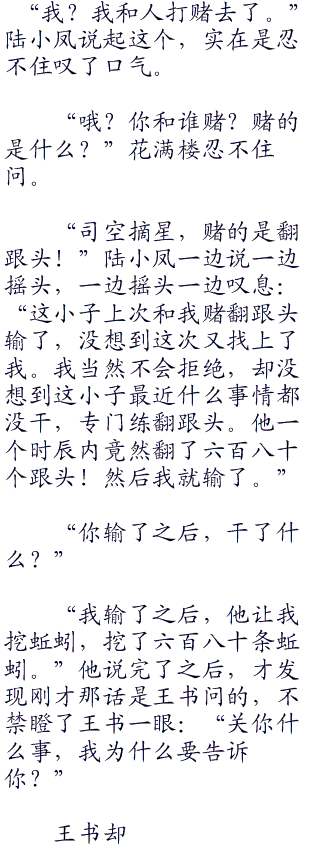 “我？我和人打赌去了。”
陆小凤说起这个，实在是忍
不住叹了口气。
“哦？你和谁赌？赌的
是什么？”花满楼忍不住
问。
“司空摘星，赌的是翻
跟头！”陆小凤一边说一边
摇头，一边摇头一边叹息：
“这小子上次和我赌翻跟头
输了，没想到这次又找上了
我。我当然不会拒绝，却没
想到这小子最近什么事情都
没干，专门练翻跟头。他一
个时辰内竟然翻了六百八十
个跟头！然后我就输了。”
“你输了之后，干了什
么？”
“我输了之后，他让我
挖蚯蚓，挖了六百八十条蚯
蚓。”他说完了之后，才发
现刚才那话是王书问的，不
禁瞪了王书一眼：“关你什
么事，我为什么要告诉
你？”
王书却